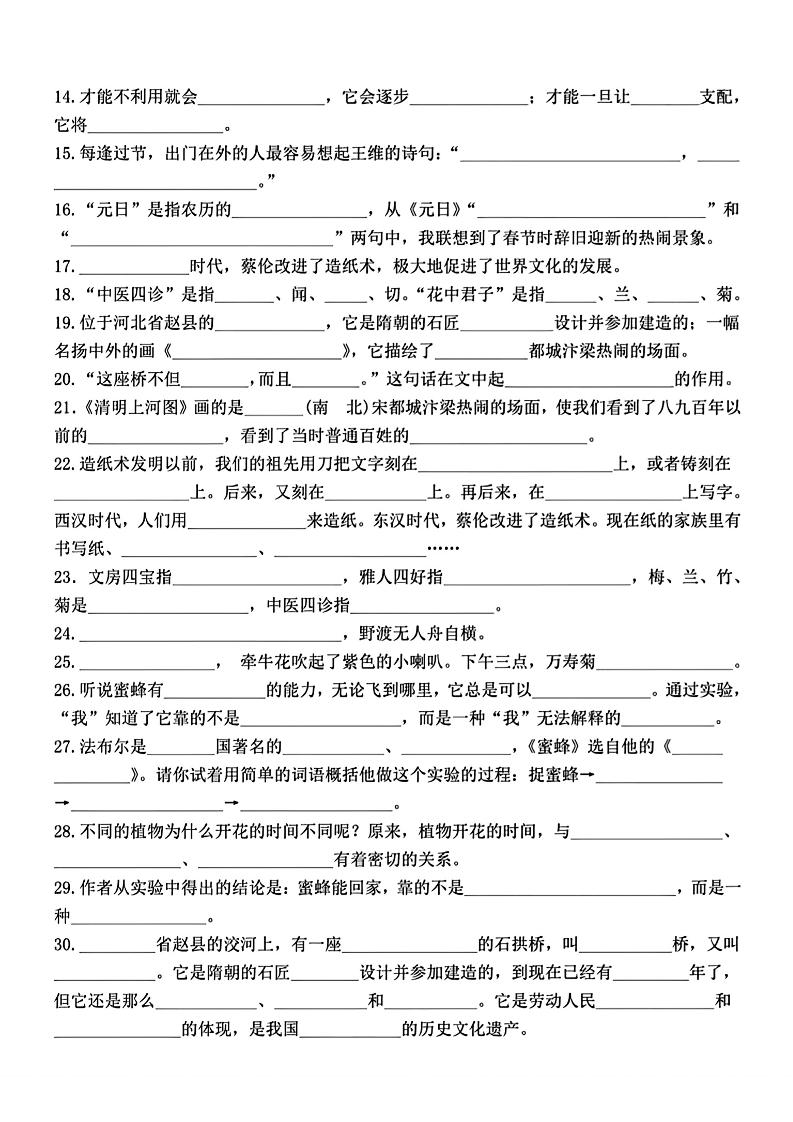 14.才能不利用就会_______________，它会逐步______________；才能一旦让________支配，
它将________________。
15.每逢过节，出门在外的人最容易想起王维的诗句：“__________________________，_____
________________________。”
16.“元日”是指农历的________________，从《元日》“___________________________”和
“_______________________________”两句中，我联想到了春节时辞旧迎新的热闹景象。
17._____________时代，蔡伦改进了造纸术，极大地促进了世界文化的发展。
18.“中医四诊”是指_______、闻、_____、切。“花中君子”是指______、兰、______、菊。
19.位于河北省赵县的_____________，它是隋朝的石匠___________设计并参加建造的；一幅
名扬中外的画《____________________》，它描绘了___________都城汴梁热闹的场面。
20.“这座桥不但________，而且________。”这句话在文中起____________________的作用。
21.《清明上河图》画的是_______(南　北)宋都城汴梁热闹的场面，使我们看到了八九百年以
前的________________，看到了当时普通百姓的_____________________。
22.造纸术发明以前，我们的祖先用刀把文字刻在_______________________上，或者铸刻在
________________上。后来，又刻在____________上。再后来，在________________上写字。
西汉时代，人们用______________来造纸。东汉时代，蔡伦改进了造纸术。现在纸的家族里有
书写纸、________________、__________________……
23．文房四宝指____________________，雅人四好指______________________，梅、兰、竹、
菊是___________________，中医四诊指_________________。
24._______________________________，野渡无人舟自横。
25.________________， 牵牛花吹起了紫色的小喇叭。下午三点，万寿菊________________。
26.听说蜜蜂有____________的能力，无论飞到哪里，它总是可以______________。通过实验，
“我”知道了它靠的不是___________________，而是一种“我”无法解释的___________。
27.法布尔是________国著名的____________、_____________，《蜜蜂》选自他的《______
_________》。请你试着用简单的词语概括他做这个实验的过程：捉蜜蜂→_______________
→__________________→__________________。
28.不同的植物为什么开花的时间不同呢？原来，植物开花的时间，与__________________、
_______________、________________有着密切的关系。
29.作者从实验中得出的结论是：蜜蜂能回家，靠的不是_________________________，而是一
种________________。
30._________省赵县的洨河上，有一座________________的石拱桥，叫___________桥，又叫
____________。它是隋朝的石匠________设计并参加建造的，到现在已经有_________年了，
但它还是那么____________、___________和___________。它是劳动人民______________和
_______________的体现，是我国____________的历史文化遗产。